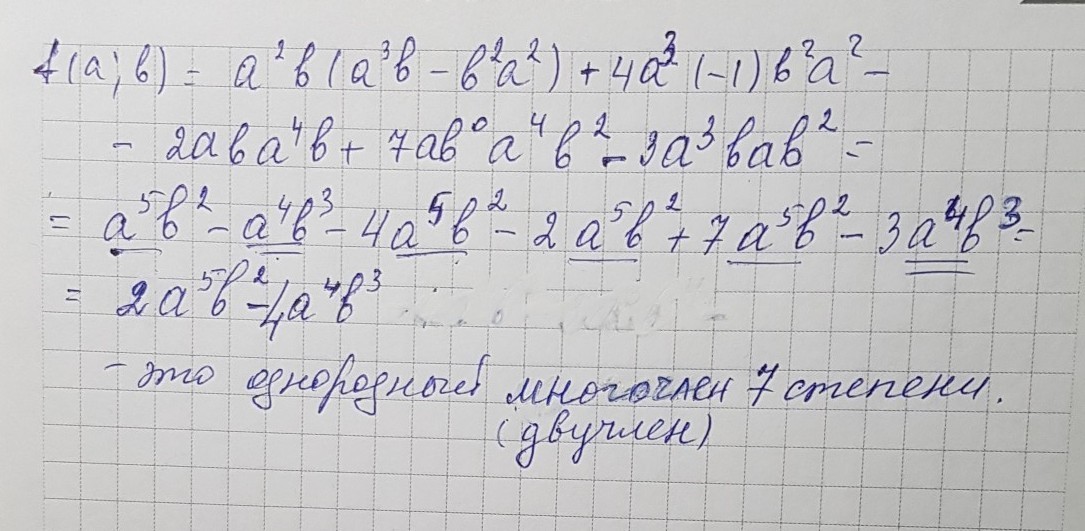 f(a; b) = a²b(a³b − b²a²) + 4a³(−1)b²a² −
− 2aba⁴b + 7ab⁰a⁴b² − 3a³bab² =
= a⁵b² − a⁴b³ − 4a⁵b² − 2a⁵b² + 7a⁵b² − 3a⁴b³ =
= 2a⁵b² − 4a⁴b³
− это однородный многочлен 7 степени.
(двучлен)